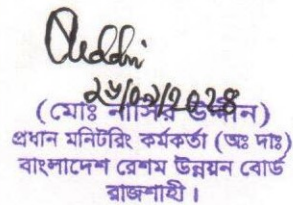 ২৬/০২/2024
(মোঃ নাসির উদ্দীন)
প্রধান মনিটরিং কর্মকর্তা (অঃ দাঃ)
বাংলাদেশ রেশম উন্নয়ন বোর্ড
রাজশাহী।